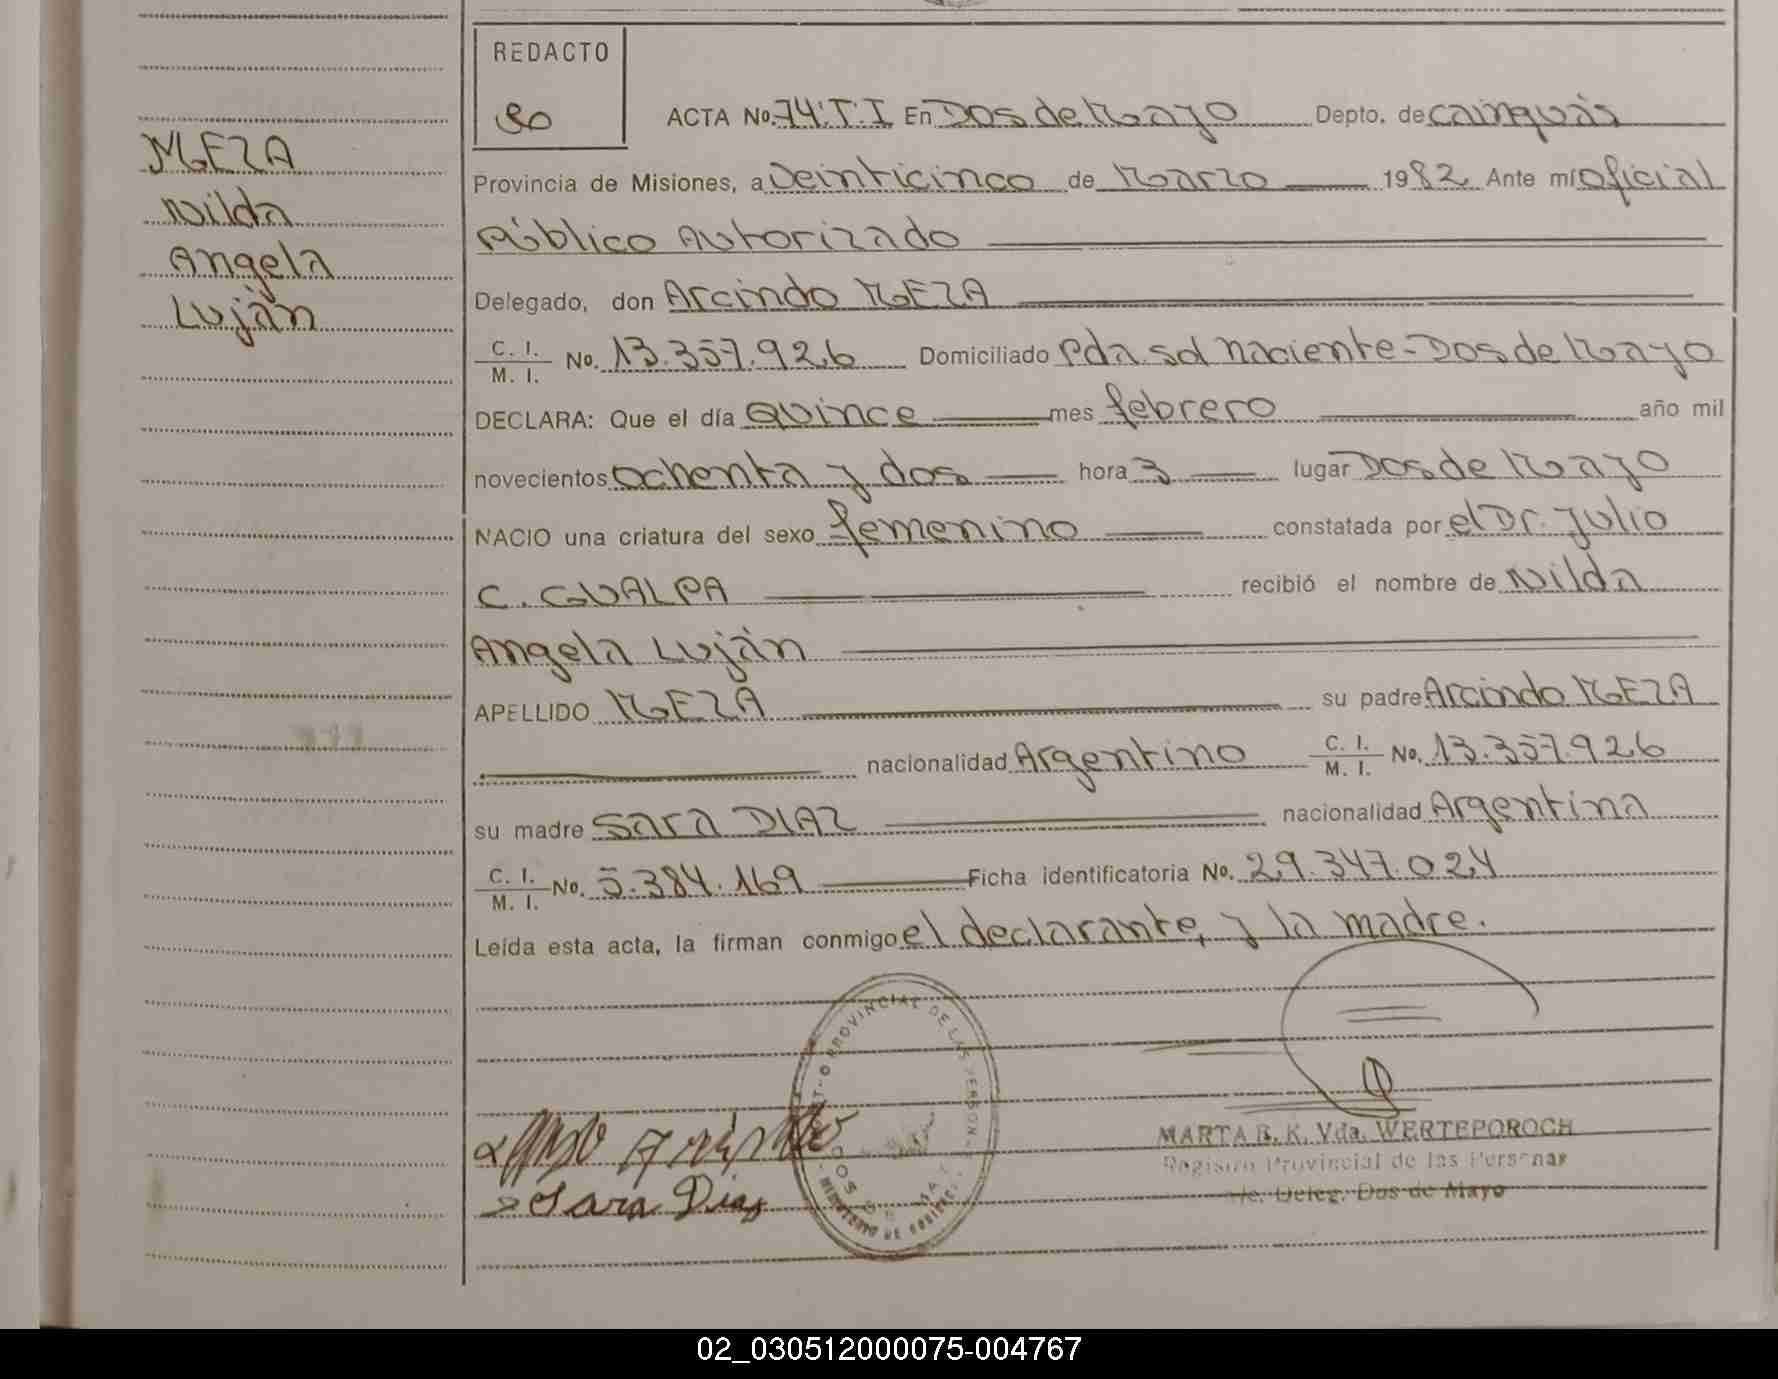 MEZA
Nilda
Angela
Luján
REDACTO
ACTA No. 74 T. I En Dos de Mayo Depto. de Cainguás
Provincia de Misiones, a Veinticinco de Marzo 1982 Ante mí oficial
Público Autorizado
Delegado, don Arcindo MEZA
C. I. / M. I. No. 13.357.926 Domiciliado Pda sol naciente - Dos de Mayo
DECLARA: Que el día Quince mes febrero año mil
novecientos ochenta y dos hora 3 lugar Dos de Mayo
NACIO una criatura del sexo femenino constatada por el Dr. Julio
C. GUALPA recibió el nombre de Nilda
Angela Luján
APELLIDO MEZA su padre Arcindo MEZA
nacionalidad Argentino C. I. / M. I. No. 13.357.926
su madre Sara DIAZ nacionalidad Argentina
C. I. / M. I. No. 5.384.169 Ficha identificatoria No. 29.347.024
Leída esta acta, la firman conmigo el declarante, y la madre.
PROVINCIAL DE LAS PERSON
MINISTERIO DE GOBIERNO
MARTA B. K. Vda. WERTEPOROCH
Registro Provincial de las Personas
Deleg. Dos de Mayo
Sara Diaz
02_030512000075-004767